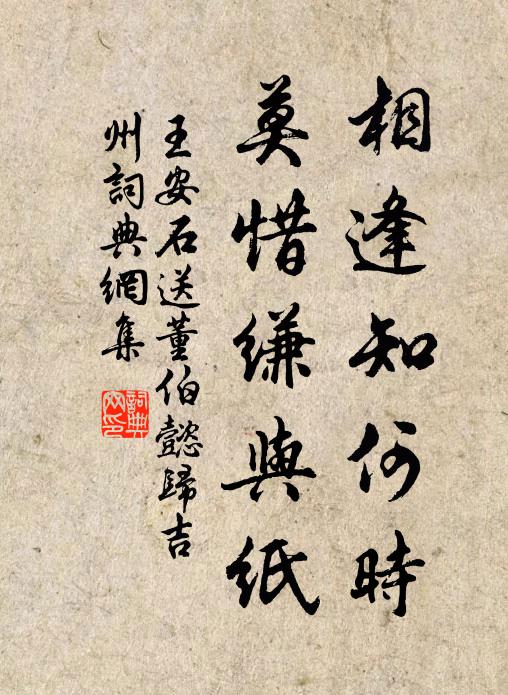 相逢知何時
莫惜縑與紙
王安石送董伯懿歸吉
州詞典網集
詞典網印